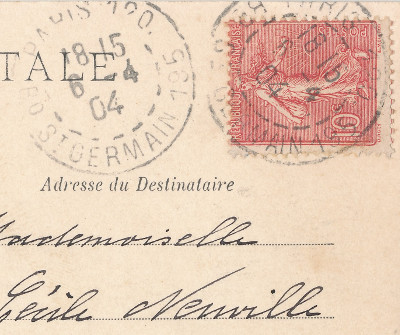 PARIS 120.
18 15
6 4
04
Bᴅ ST GERMAIN 195
TALE
RÉPUBLIQUE FRANÇAISE
POSTES
10
Adresse du Destinataire
Mademoiselle
Cécile Neuville